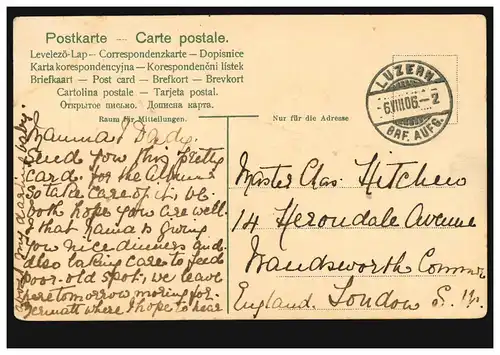 Postkarte – Carte postale.
Levelező-Lap – Correspondenzkarte – Dopisnice
Karta korespondencyjna – Korespondenční lístek
Briefkaart – Post card – Brefkort – Brevkort
Cartolina postale – Tarjeta postal.
Открытое письмо. Дописна карта.
Raum für Mitteilungen.
Nur für die Adresse
LUZERN
6.VIII.06.–2
BRF. AUFG.
Mamma & Dady.
Send you this pretty
card. for the Album
So take care of it, we
both hope you are well.
& that Nana is giving
you nice dinners and.
also taking care to feed
poor old spot; we leave
here tomorrow morning for
Zermatt where I hope to hear
my darling baby.
Master Chas Hitchen
14 Herondale Avenue
Wandsworth Common
England. London S. W.